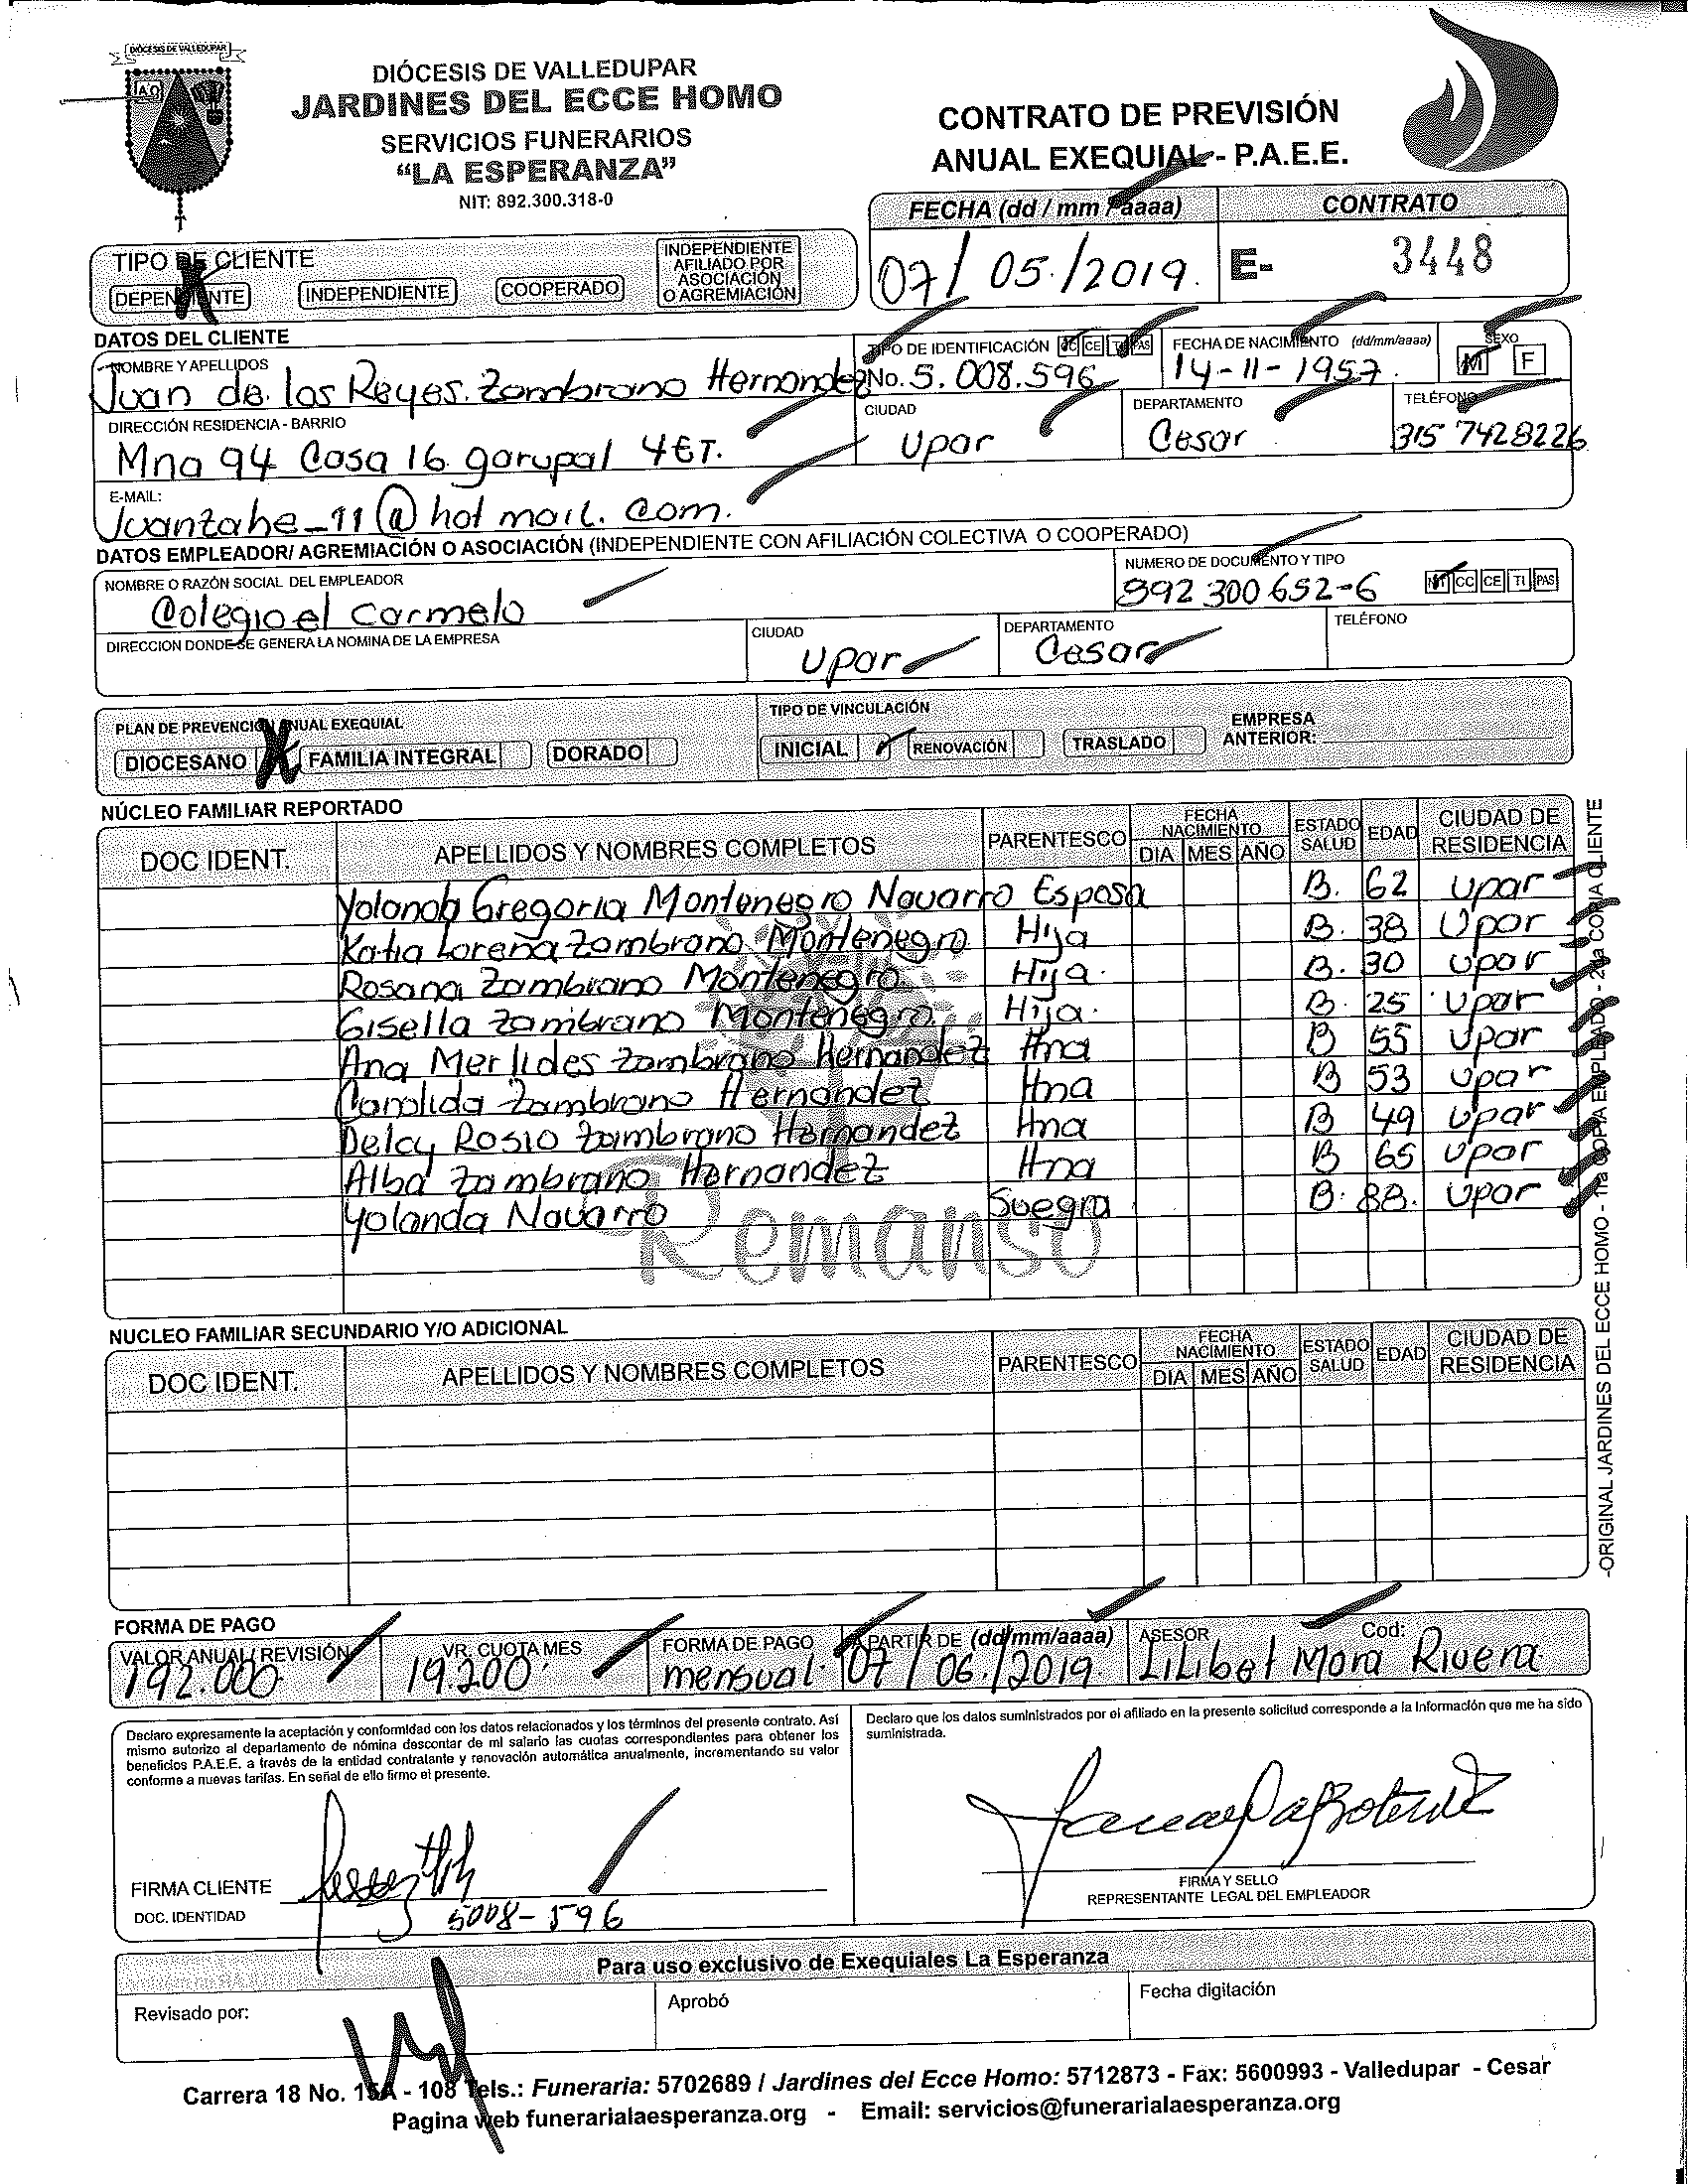 DIÓCESIS DE VALLEDUPAR
DIÓCESIS DE VALLEDUPAR
JARDINES DEL ECCE HOMO
SERVICIOS FUNERARIOS
“LA ESPERANZA”
NIT: 892.300.318-0
CONTRATO DE PREVISIÓN
ANUAL EXEQUIAL - P.A.E.E.
FECHA (dd / mm / aaaa) CONTRATO
07/ 05./2019. E- 3448
TIPO DE CLIENTE
DEPENDIENTE INDEPENDIENTE COOPERADO INDEPENDIENTE AFILIADO POR ASOCIACIÓN O AGREMIACIÓN
DATOS DEL CLIENTE
NOMBRE Y APELLIDOS TIPO DE IDENTIFICACIÓN CC CE TI PAS FECHA DE NACIMIENTO (dd/mm/aaaa) SEXO
Juan de los Reyes Zambrano Hernandez No. 5.008.596 14-11-1957. M F
DIRECCIÓN RESIDENCIA - BARRIO CIUDAD DEPARTAMENTO TELÉFONO
Mna 94 Casa 16 garupal 4ET. Upar Cesar 315 7428226
E-MAIL:
Juanzahe_11@hotmail.com.
DATOS EMPLEADOR/ AGREMIACIÓN O ASOCIACIÓN (INDEPENDIENTE CON AFILIACIÓN COLECTIVA O COOPERADO)
NOMBRE O RAZÓN SOCIAL DEL EMPLEADOR NUMERO DE DOCUMENTO Y TIPO
Colegio el Carmelo 892300652-6 NIT CC CE TI PAS
DIRECCION DONDE SE GENERA LA NOMINA DE LA EMPRESA CIUDAD DEPARTAMENTO TELÉFONO
Upar Cesar
PLAN DE PREVENCIÓN ANUAL EXEQUIAL TIPO DE VINCULACIÓN
DIOCESANO FAMILIA INTEGRAL DORADO INICIAL RENOVACIÓN TRASLADO EMPRESA ANTERIOR:
NÚCLEO FAMILIAR REPORTADO
DOC IDENT. APELLIDOS Y NOMBRES COMPLETOS PARENTESCO FECHA NACIMIENTO DIA MES AÑO ESTADO SALUD EDAD CIUDAD DE RESIDENCIA
Yolanda Gregoria Montenegro Navarro Esposa B. 62 Upar
Katia Lorena Zambrano Montenegro Hija B. 38 Upar
Rosana Zambrano Montenegro Hija. B. 30 Upar
Gisella Zambrano Montenegro. Hija. B. 25 Upar
Ana Merlides Zambrano Hernandez Hna B 55 Upar
Candida Zambrano Hernandez Hna B 53 Upar
Delcy Rosio Zambrano Hernandez Hna B 49 Upar
Alba Zambrano Hernandez Hna B 65 Upar
Yolanda Navarro Suegra B. 88. Upar
Remanso
NUCLEO FAMILIAR SECUNDARIO Y/O ADICIONAL
DOC IDENT. APELLIDOS Y NOMBRES COMPLETOS PARENTESCO FECHA NACIMIENTO DIA MES AÑO ESTADO SALUD EDAD CIUDAD DE RESIDENCIA
-ORIGINAL JARDINES DEL ECCE HOMO - 1ra COPIA EMPLEADO - 2da COPIA CLIENTE
FORMA DE PAGO
VALOR ANUAL PREVISIÓN VR. CUOTA MES FORMA DE PAGO A PARTIR DE (dd/mm/aaaa) ASESOR Cod:
192.000 19.200 mensual. 07/ 06./2019. LiLibet Mora Rivera
Declaro expresamente la aceptación y conformidad con los datos relacionados y los términos del presente contrato. Así
mismo autorizo al departamento de nómina descontar de mi salario las cuotas correspondientes para obtener los
beneficios P.A.E.E. a través de la entidad contratante y renovación automática anualmente, incrementando su valor
conforme a nuevas tarifas. En señal de ello firmo el presente.
Declaro que los datos suministrados por el afiliado en la presente solicitud corresponde a la Información que me ha sido
suministrada.
FIRMA CLIENTE
DOC. IDENTIDAD 5008-596
FIRMA Y SELLO
REPRESENTANTE LEGAL DEL EMPLEADOR
Para uso exclusivo de Exequiales La Esperanza
Revisado por: Aprobó Fecha digitación
Carrera 18 No. 15A - 108 Tels.: Funeraria: 5702689 / Jardines del Ecce Homo: 5712873 - Fax: 5600993 - Valledupar - Cesar
Pagina web funerarialaesperanza.org - Email: servicios@funerarialaesperanza.org